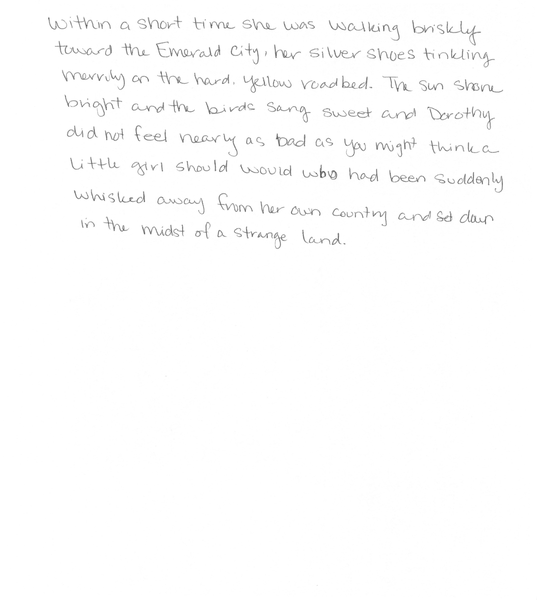 Within a short time she was walking briskly
toward the Emerald City, her silver shoes tinkling
merrily on the hard, yellow roadbed. The sun shone
bright and the birds sang sweet and Dorothy
did not feel nearly as bad as you might think a
little girl should would who had been suddenly
whisked away from her own country and set down
in the midst of a strange land.